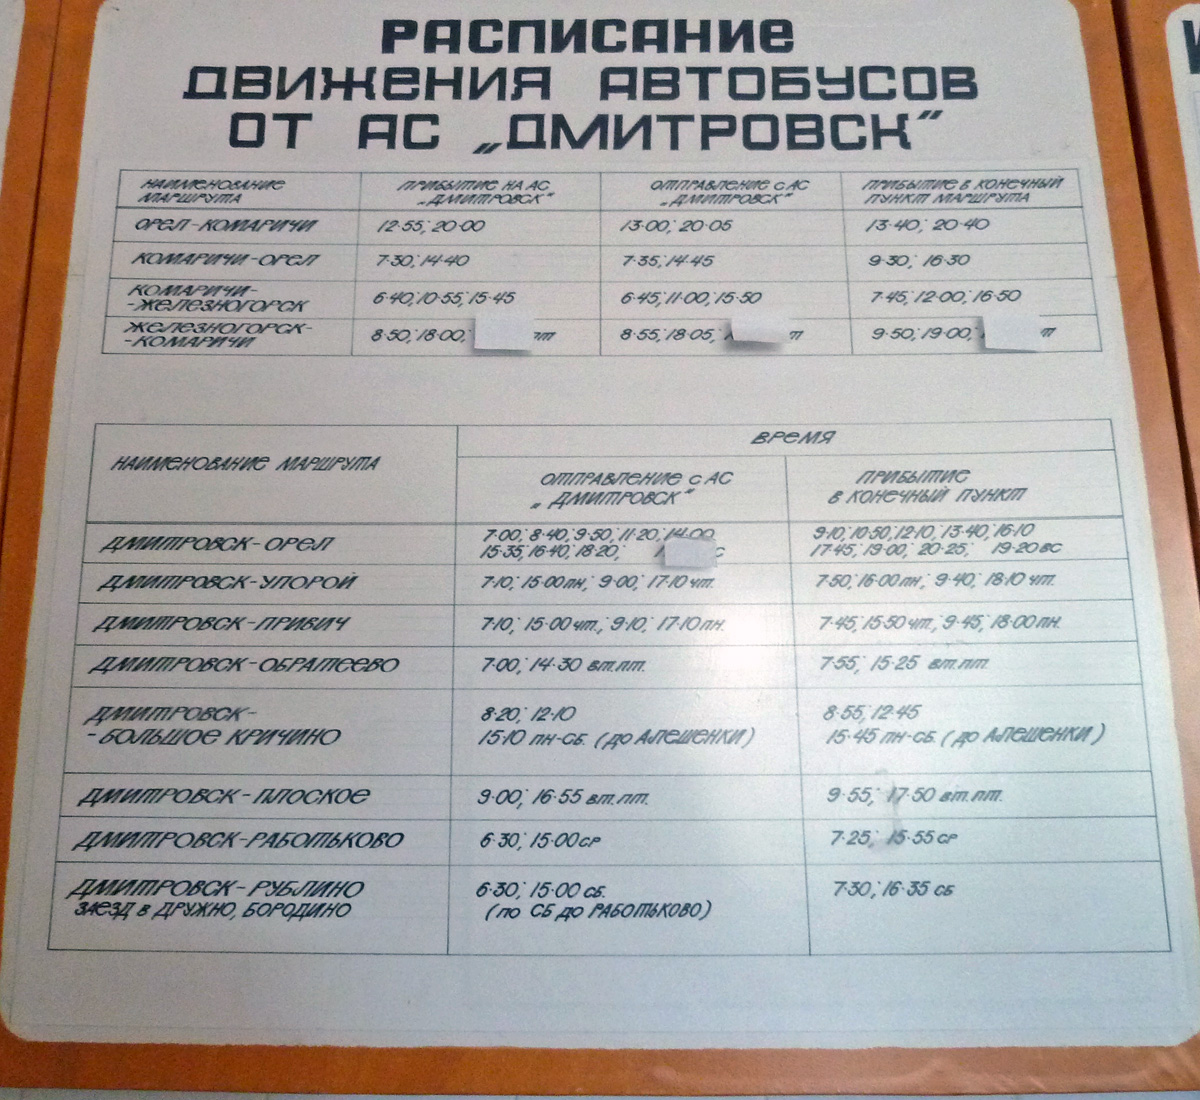 РАСПИСАНИЕ
ДВИЖЕНИЯ АВТОБУСОВ
ОТ АС „ДМИТРОВСК"
НАИМЕНОВАНИЕ МАРШРУТА
ПРИБЫТИЕ НА АС „ДМИТРОВСК"
ОТПРАВЛЕНИЕ с АС „ДМИТРОВСК"
ПРИБЫТИЕ В КОНЕЧНЫЙ ПУНКТ МАРШРУТА
ОРЕЛ-КОМАРИЧИ 12·55; 20·00 13·00; 20·05 13·40; 20·40
КОМАРИЧИ-ОРЕЛ 7·30; 14·40 7·35; 14·45 9·30; 16·30
КОМАРИЧИ-
-ЖЕЛЕЗНОГОРСК 6·40; 10·55; 15·45 6·45; 11·00; 15·50 7·45; 12·00; 16·50
ЖЕЛЕЗНОГОРСК-
-КОМАРИЧИ 8·50; 18·00; 8·55; 18·05; 9·50; 19·00;
НАИМЕНОВАНИЕ МАРШРУТА
ВРЕМЯ
ОТПРАВЛЕНИЕ с АС
„ДМИТРОВСК"
ПРИБЫТИЕ
В КОНЕЧНЫЙ ПУНКТ
ДМИТРОВСК-ОРЕЛ
7·00; 8·40; 9·50; 11·20; 14·00
15·35; 16·40; 18·20;
9·10; 10·50; 12·10; 13·40; 16·10
17·45; 19·00; 20·25; 19·20 ВС
ДМИТРОВСК-УПОРОЙ 7·10; 15·00 пн.; 9·00; 17·10 чт. 7·50; 16·00 пн.; 9·40; 18·10 чт.
ДМИТРОВСК-ПРИВИЧ 7·10; 15·00 чт.; 9·10; 17·10 пн. 7·45; 15·50 чт.; 9·45; 18·00 пн.
ДМИТРОВСК-ОБРАТЕЕВО 7·00; 14·30 вт.пт. 7·55; 15·25 вт.пт.
ДМИТРОВСК-
-БОЛЬШОЕ КРИЧИНО
8·20; 12·10
15·10 ПН-СБ. (до АЛЕШЕНКИ)
8·55; 12·45
15·45 ПН-СБ. (до АЛЕШЕНКИ)
ДМИТРОВСК-ПЛОСКОЕ 9·00; 16·55 вт.пт. 9·55; 17·50 вт.пт.
ДМИТРОВСК-РАБОТЬКОВО 6·30; 15·00 ср 7·25; 15·55 ср
ДМИТРОВСК-РУБЛИНО
ЗАЕЗД в ДРУЖНО, БОРОДИНО
6·30; 15·00 сб.
(по СБ до РАБОТЬКОВО)
7·30; 16·35 сб